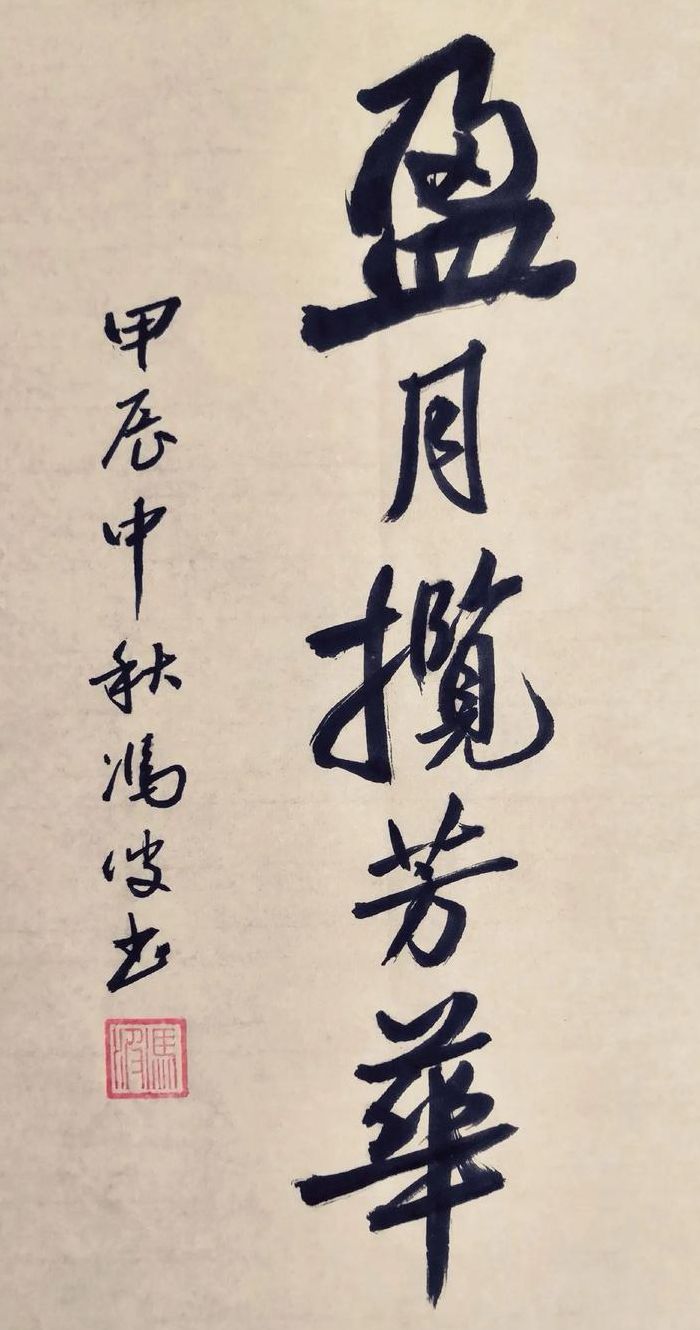 盈月攬芳華
甲辰中秋馮波书
馮波